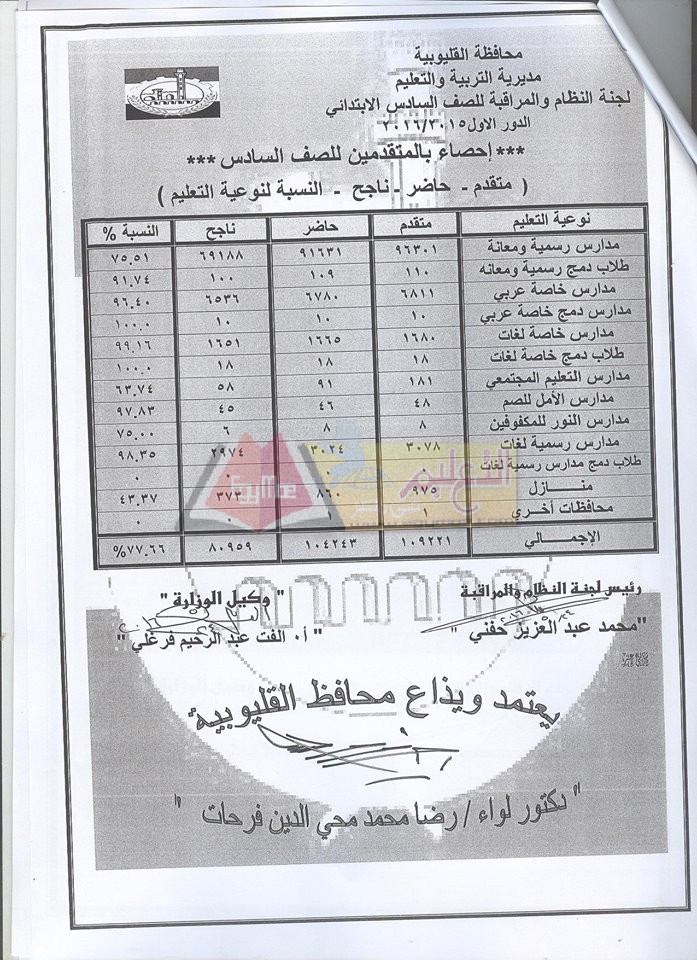 محافظة القليوبية
مديرية التربية والتعليم
لجنة النظام والمراقبة للصف السادس الابتدائي
الدور الاول ٢٠١٦/٢٠١٥
*** إحصاء بالمتقدمين للصف السادس ***
( متقدم - حاضر - ناجح - النسبة لنوعية التعليم )
نوعية التعليم متقدم حاضر ناجح النسبة %
مدارس رسمية ومعانة ٩٦٣٠١ ٩١٦٣١ ٦٩١٨٨ ٧٥.٥١
طلاب دمج رسمية ومعانه ١١٠ ١٠٩ ١٠٠ ٩١.٧٤
مدارس خاصة عربي ٦٨١١ ٦٧٨٠ ٦٥٣٦ ٩٦.٤٠
مدارس دمج خاصة عربي ١٠ ١٠ ١٠ ١٠٠.٠
مدارس خاصة لغات ١٦٨٠ ١٦٦٥ ١٦٥١ ٩٩.١٦
طلاب دمج خاصة لغات ١٨ ١٨ ١٨ ١٠٠.٠
مدارس التعليم المجتمعي ١٨١ ٩١ ٥٨ ٦٣.٧٤
مدارس الأمل للصم ٤٨ ٤٦ ٤٥ ٩٧.٨٣
مدارس النور للمكفوفين ٨ ٨ ٦ ٧٥.٠٠
مدارس رسمية لغات ٣٠٧٨ ٣٠٢٤ ٢٩٧٤ ٩٨.٣٥
طلاب دمج مدارس رسمية لغات ٠ ٠ ٠ ٠
منـــازل ٩٧٥ ٨٦٠ ٣٧٣ ٤٣.٣٧
محافظات أخري ١ ١ ٠ ٠
الإجمـــالي ١٠٩٢٢١ ١٠٤٢٤٣ ٨٠٩٥٩ ٧٧.٦٦%
التعليم
EgyMoe
رئيس لجنة النظام والمراقبة " وكيل الوزارة "
"محمد عبد العزيز حفني " " أ. الفت عبد الرحيم فرغلي "
يعتمد ويذاع محافظ القليوبية
" دكتور لواء / رضا محمد محي الدين فرحات "